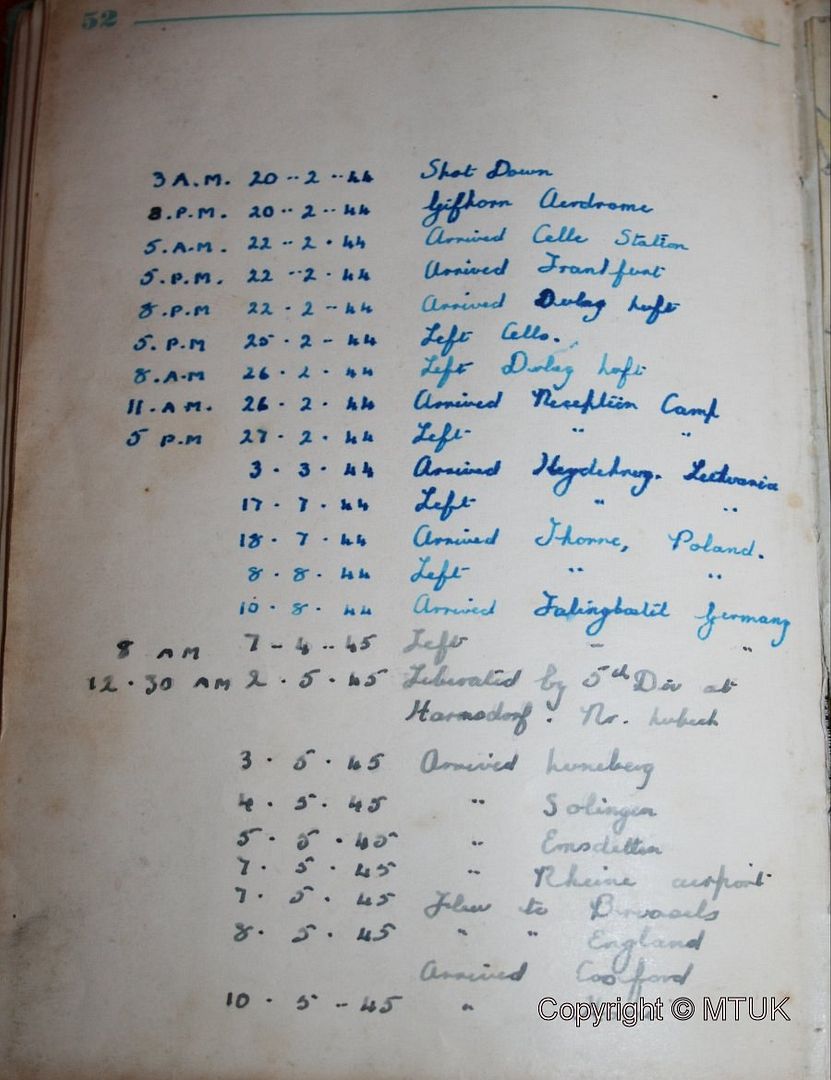 52
3 A.M. 20 - 2 - 44 Shot Down
8. P.M. 20 - 2 - 44 Gifhorn Aerdrome
5. A.M. 22 - 2 - 44 Arrived Celle Station
5. P.M. 22 - 2 - 44 Arrived Frankfurt
8. P.M 22 - 2 - 44 Arrived Dulag Luft
5. P.M 25 - 2 - 44 Left Cells.
8. A.M 26 - 2 - 44 Left Dulag Luft
11. A.M. 26 - 2 - 44 Arrived Reception Camp
5 P.M 27 - 2 - 44 Left " "
3 - 3 - 44 Arrived Heydekrug. Lithuania
17 - 7 - 44 Left " "
18 - 7 - 44 Arrived Thorne, Poland.
8 - 8 - 44 Left " "
10 - 8 - 44 Arrived Falingbostil Germany
8 AM 7 - 4 - 45 Left " "
12.30 AM 2 . 5 . 45 Liberated by 5th Div at
Harmsdorf. Nr. Lubeck
3 . 5 . 45 Arrived Luneberg
4 . 5 . 45 " Solingen
5 . 5 . 45 " Emsdetten
7 . 5 . 45 " Rheine airport
7 . 5 . 45 Flew to Brussels
8 . 5 . 45 " " England
Arrived Cosford
10 . 5 - 45 "
Copyright © MTUK